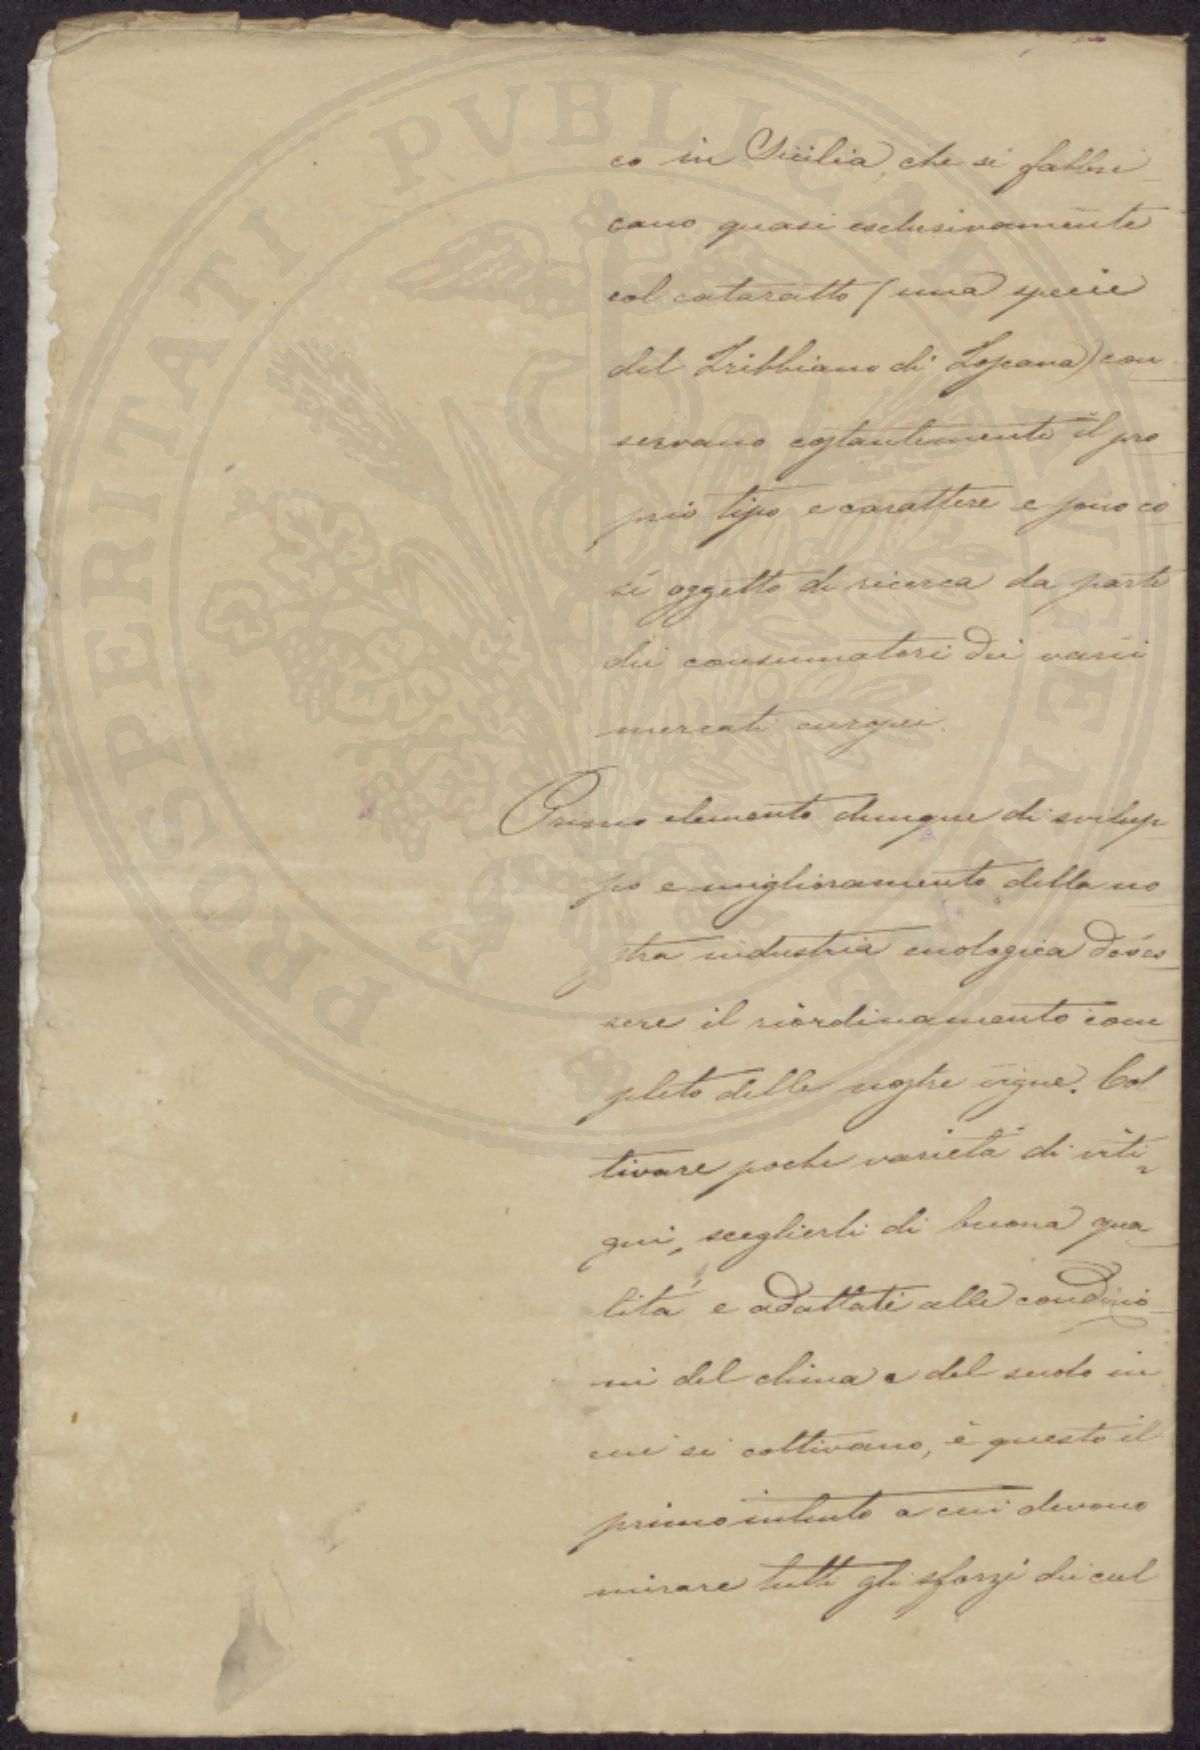 co in Sicilia, che si fabbri
cano quasi esclusivamente
col cataratto (una specie
del Tribbiano di Toscana) con
servano costantemente il pro
prio tipo e carattere e sono co
sì oggetto di ricerca da parte
dei consumatori dei varii
mercati europei.
Primo elemento dunque di svilup
po e miglioramento della no
stra industria enologica dov'es
sere il riordinamento com
pleto delle nostre vigne. Col
tivare poche varietà di viti
gni, sceglierli di buona qua
lità e adattati alle condizio
ni del clima e del suolo in
cui si coltivano, è questo il
primo intento a cui devono
mirare tutti gli sforzi dei cul
PROSPERITATI PVBLICAE AVGENDAE